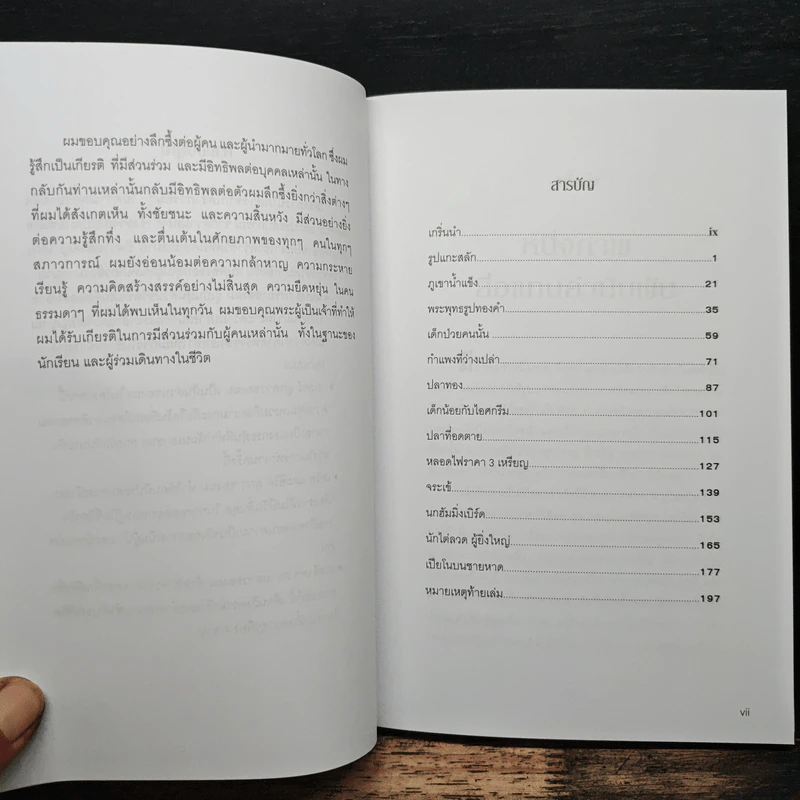 ผมขอบคุณอย่างลึกซึ้งต่อผู้คน และผู้นำมากมายทั่วโลก ซึ่งผม
รู้สึกเป็นเกียรติ ที่มีส่วนร่วม และมีอิทธิพลต่อบุคคลเหล่านั้น ในทาง
กลับกันท่านเหล่านั้นกลับมีอิทธิพลต่อตัวผมลึกซึ้งยิ่งกว่าสิ่งต่างๆ
ที่ผมได้สังเกตเห็น ทั้งชัยชนะ และความสิ้นหวัง มีส่วนอย่างยิ่ง
ต่อความรู้สึกทึ่ง และตื่นเต้นในศักยภาพของทุกๆ คนในทุกๆ
สภาวการณ์ ผมยังอ่อนน้อมต่อความกล้าหาญ ความกระหาย
เรียนรู้ ความคิดสร้างสรรค์อย่างไม่สิ้นสุด ความยืดหยุ่น ในคน
ธรรมดาๆ ที่ผมได้พบเห็นในทุกวัน ผมขอบคุณพระผู้เป็นเจ้าที่ทำให้
ผมได้รับเกียรติในการมีส่วนร่วมกับผู้คนเหล่านั้น ทั้งในฐานะของ
นักเรียน และผู้ร่วมเดินทางในชีวิต
สารบัญ
เกริ่นนำ ix
รูปแกะสลัก 1
ภูเขาน้ำแข็ง 21
พระพุทธรูปทองคำ 35
เด็กป่วยคนนั้น 59
กำแพงที่ว่างเปล่า 71
ปลาทอง 87
เด็กน้อยกับไอศกรีม 101
ปลาที่อดตาย 115
หลอดไฟราคา 3 เหรียญ 127
จระเข้ 139
นกฮัมมิ่งเบิร์ด 153
นักไต่ลวด ผู้ยิ่งใหญ่ 165
เปียโนบนชายหาด 177
หมายเหตุท้ายเล่ม 197
vii